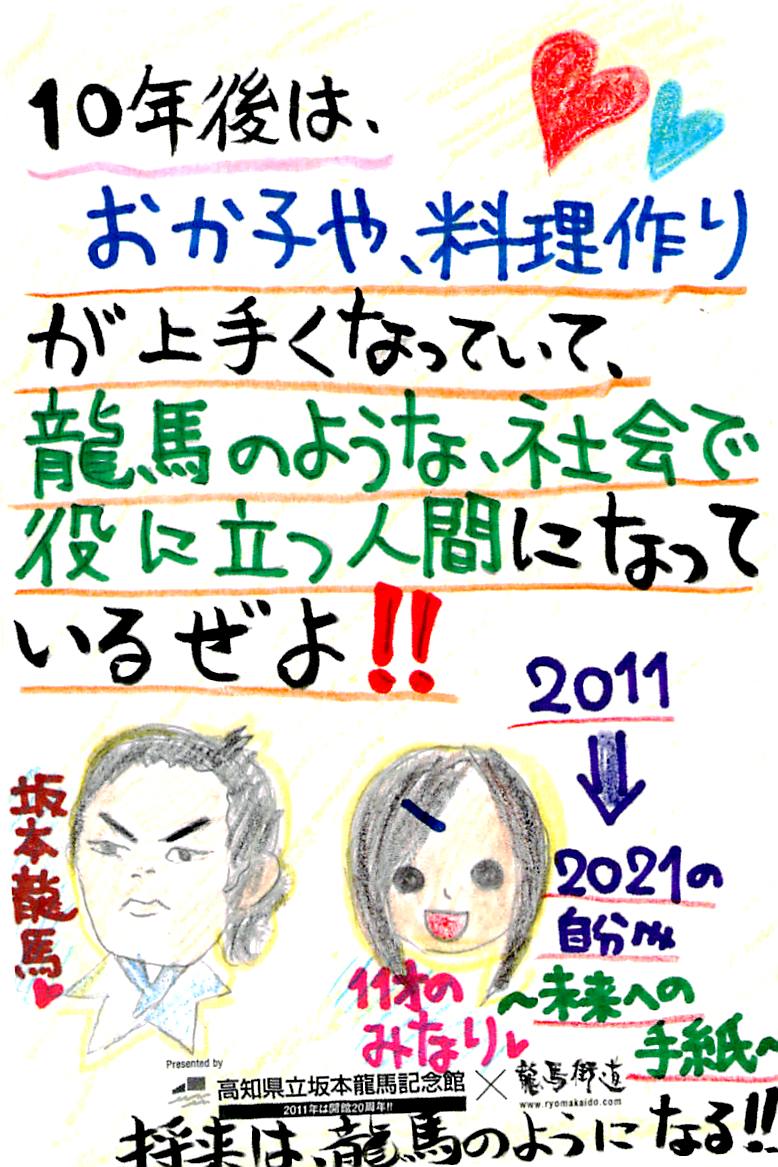 10年後は、
おか子や、料理作り
が上手くなっていて、
龍馬のような、社会で
役に立つ人間になって
いるぜよ!!
2011
2021の
自分へ
坂本龍馬
11才の
みなり
〜未来への
手紙〜
Presented by
高知県立坂本龍馬記念館×龍馬街道
2011年は開館20周年!!
www.ryomakaido.com
将来は、龍馬のようになる!!